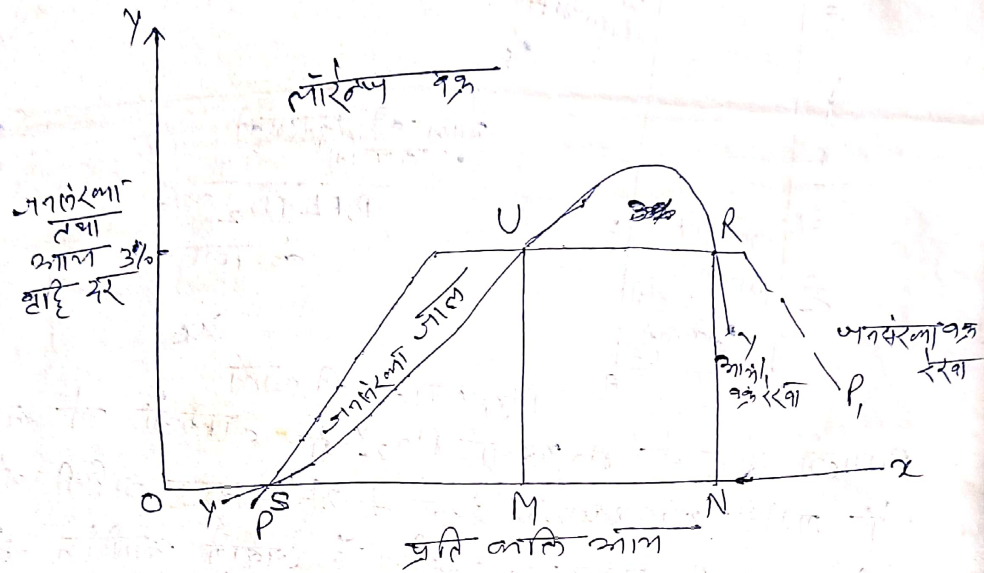 Y
लॉरेन्ज वक्र
जनसंख्या
तथा
आय 3%
वृद्धि दर
U
3%
R
जनसंख्या जाल
Y
आय
वक्र रेखा
जनसंख्या वक्र
रेखा
P₁
x
O
Y
P
S
M
N
प्रति व्यक्ति आय